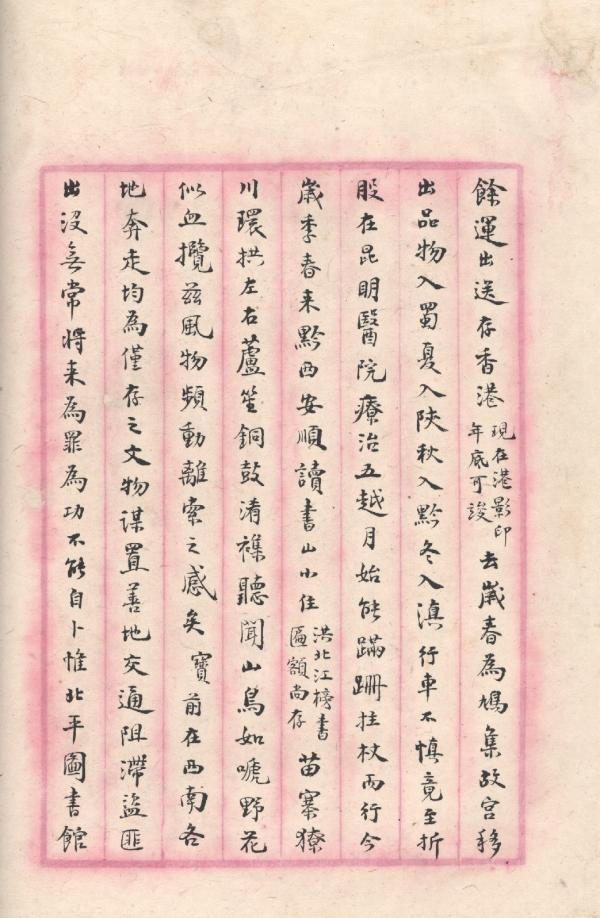 餘運出送存香港現在港影印年底可竣去歲春為鳩集故宮移
出品物入蜀夏入陝秋入黔冬入滇行車不慎竟至折
股在昆明醫院療治五越月始能蹣跚拄杖而行今
歲季春来黔西安順讀書山小住洪北江榜書匾額尚存苗寨獠
川環拱左右蘆笙銅鼓淆襍聽聞山鳥如唬野花
似血攬茲風物頻動離索之感矣寶前在西南各
地奔走均為僅存之文物謀置善地交通阻滯盜匪
出没無常将来為罪為功不能自卜惟北平圖書館